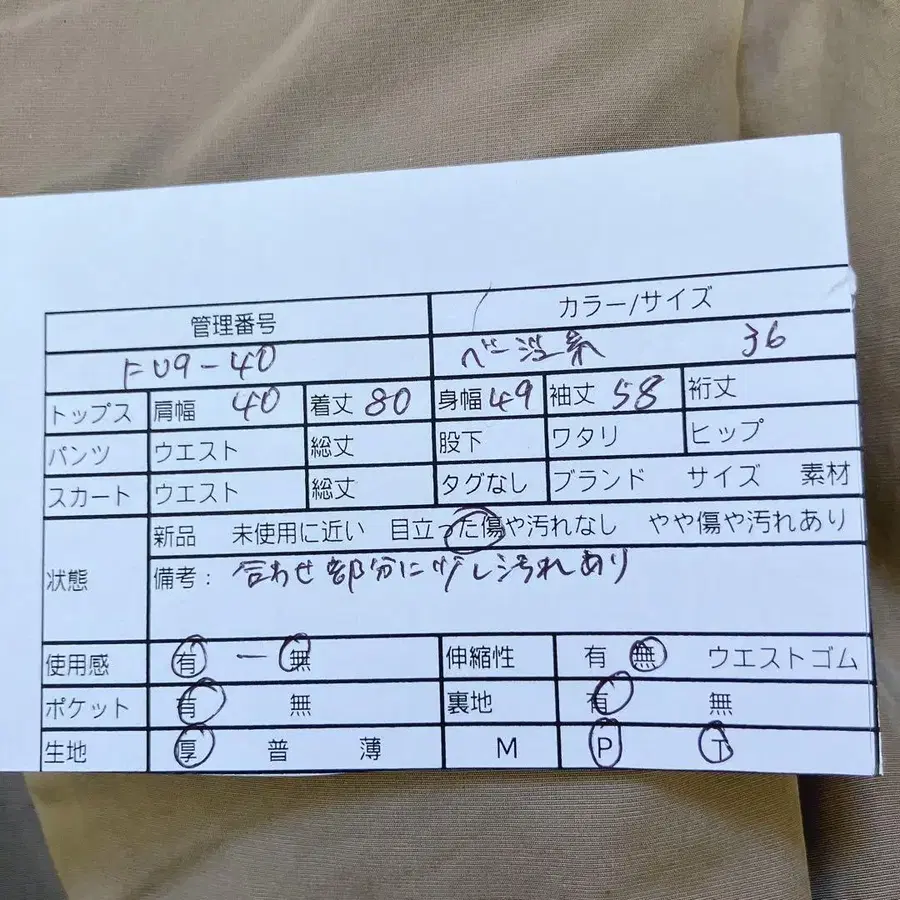 管理番号 カラー/サイズ
FU9-40 ベージュ系 36
トップス 肩幅 40 着丈 80 身幅 49 袖丈 58 裄丈
パンツ ウエスト 総丈 股下 ワタリ ヒップ
スカート ウエスト 総丈 タグなし ブランド サイズ 素材
状態 新品 未使用に近い 目立った傷や汚れなし やや傷や汚れあり
備考: 合わせ部分に少し汚れあり
使用感 有 ー 無 伸縮性 有 無 ウエストゴム
ポケット 有 無 裏地 有 無
生地 厚 普 薄 M P T